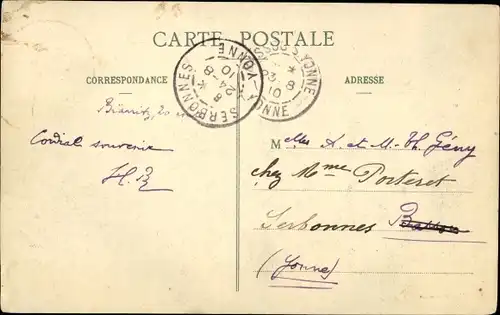 CARTE POSTALE
CORRESPONDANCE
ADRESSE
SERBONNES YONNE
24-8
10
YONNE
8
10
Biarritz, 20
Cordial souvenir
H. B
Melles A. et M. Th. Gény
chez Mme Porteret
Serbonnes
(Yonne)